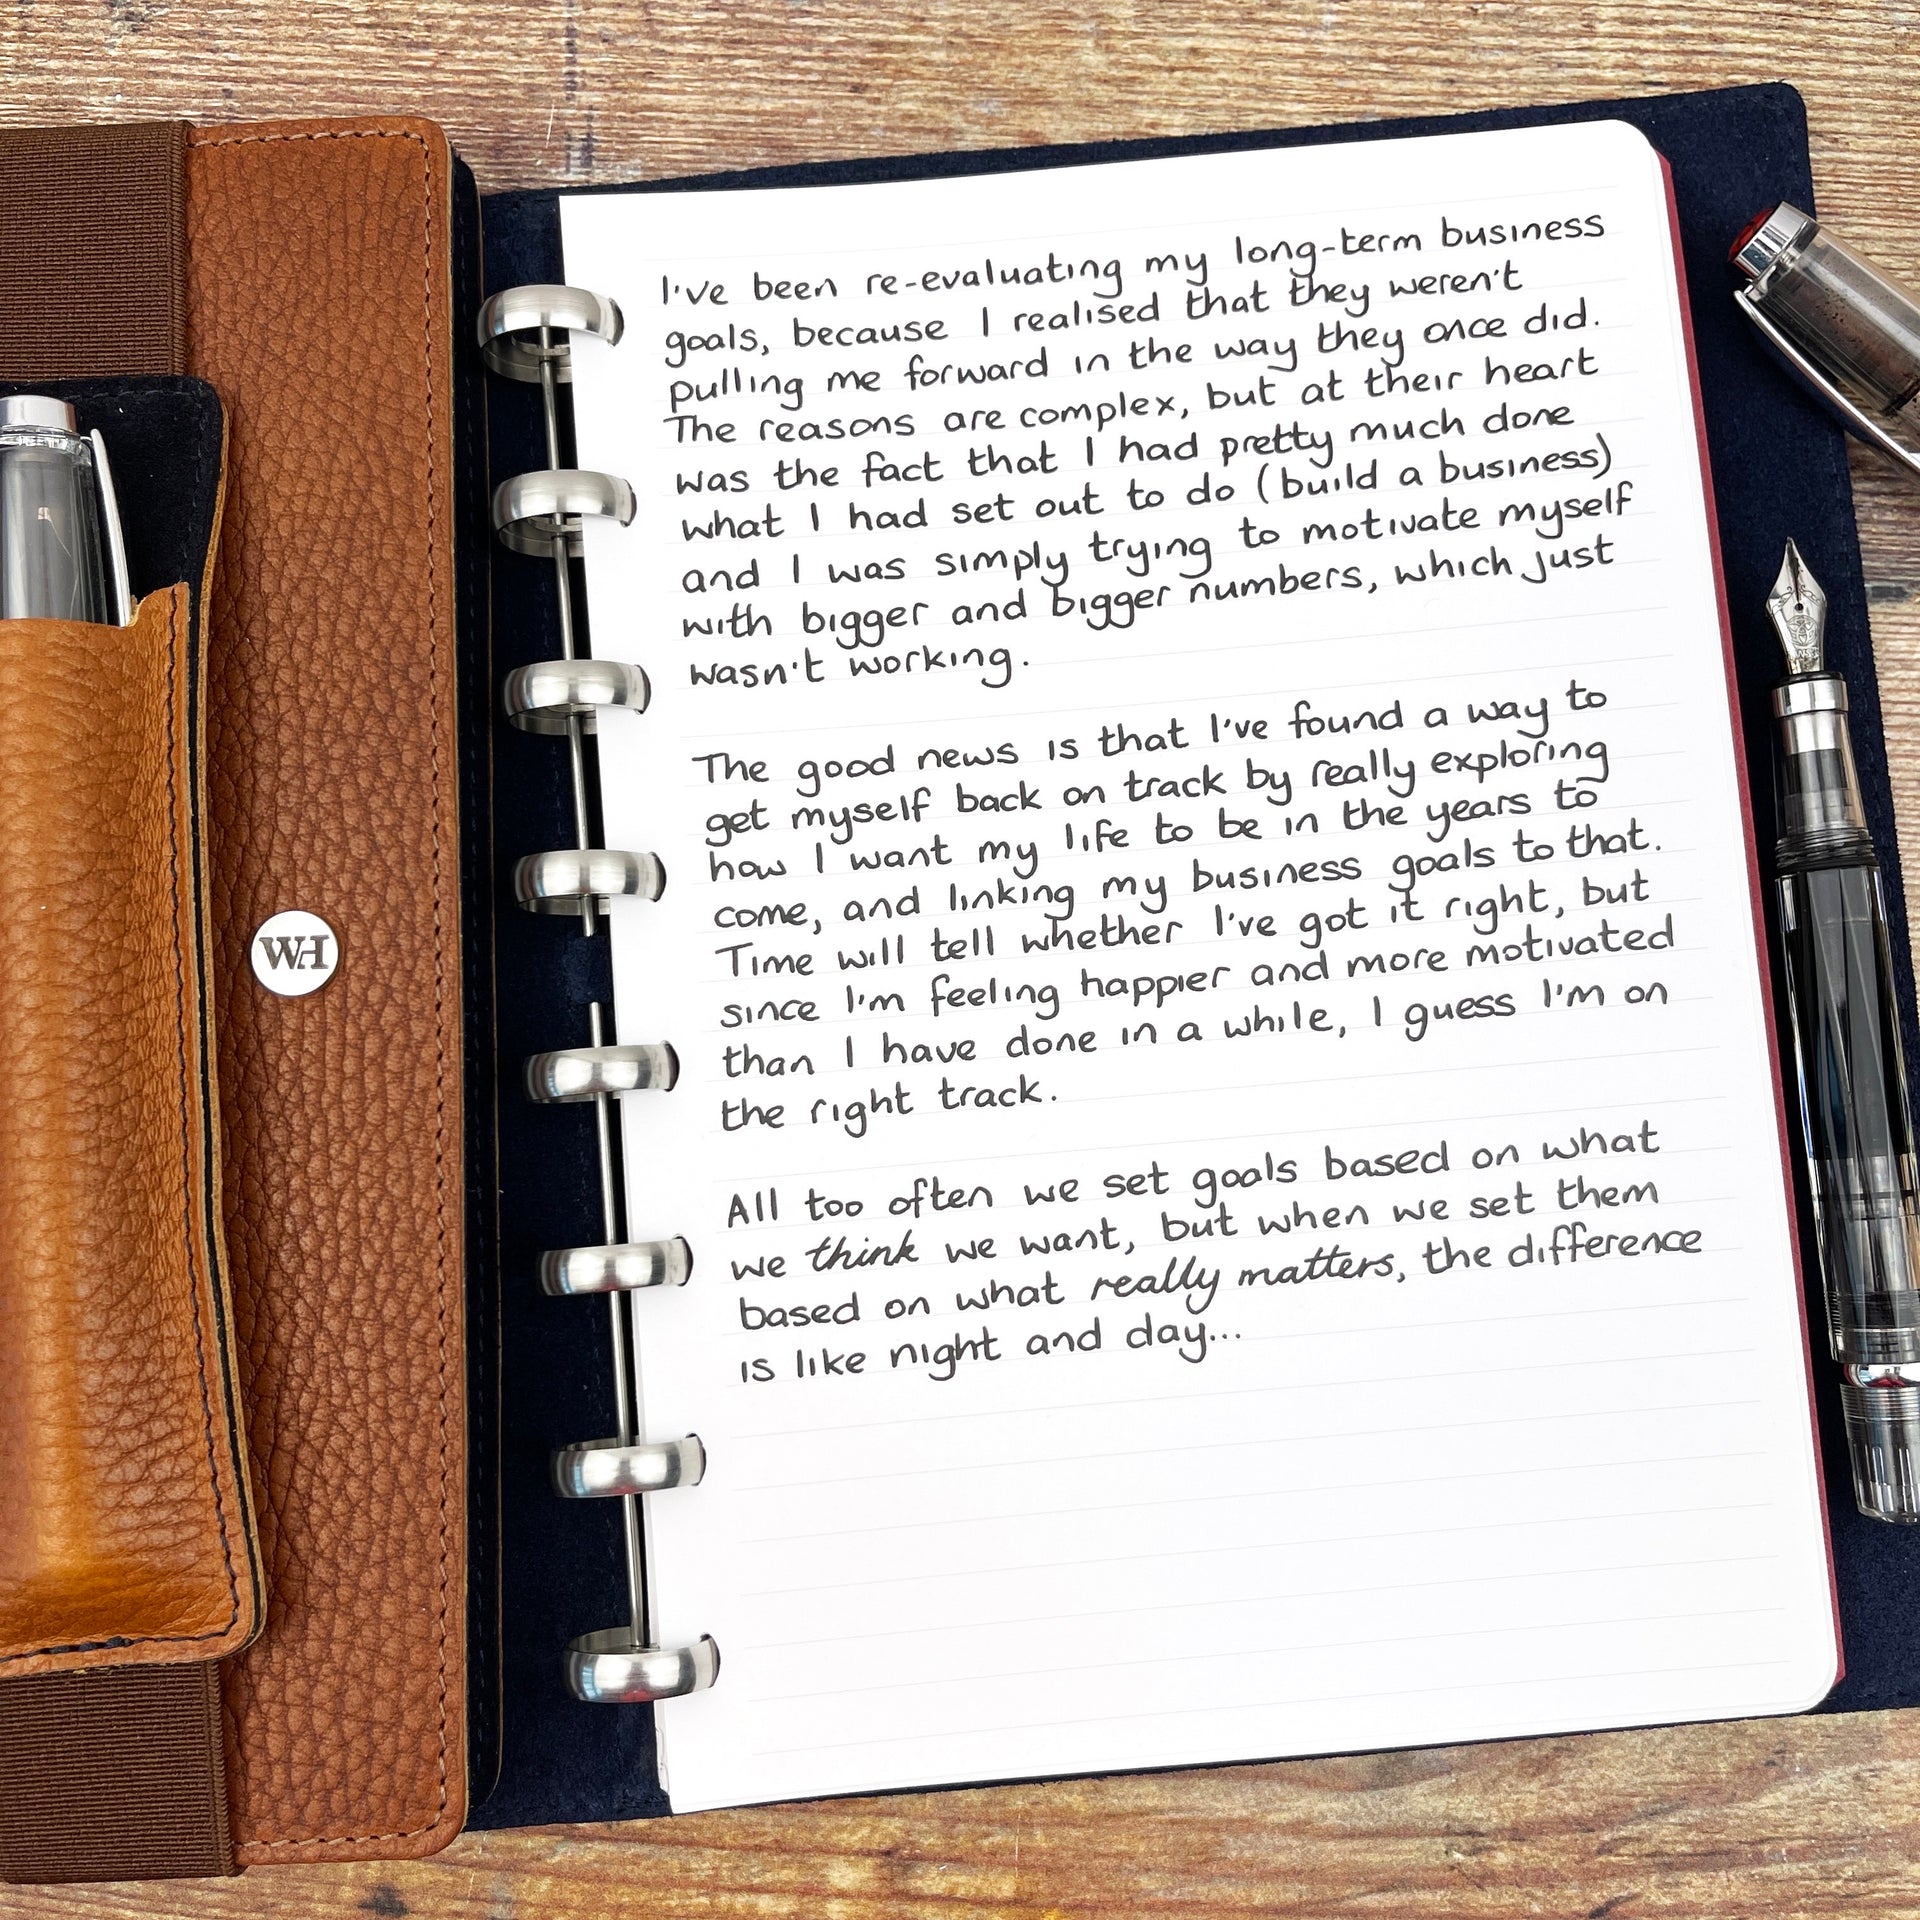 I've been re-evaluating my long-term business
goals, because I realised that they weren't
pulling me forward in the way they once did.
The reasons are complex, but at their heart
was the fact that I had pretty much done
what I had set out to do (build a business)
and I was simply trying to motivate myself
with bigger and bigger numbers, which just
wasn't working.
The good news is that I've found a way to
get myself back on track by really exploring
how I want my life to be in the years to
come, and linking my business goals to that.
Time will tell whether I've got it right, but
since I'm feeling happier and more motivated
than I have done in a while, I guess I'm on
the right track.
All too often we set goals based on what
we think we want, but when we set them
based on what really matters, the difference
is like night and day...
WH